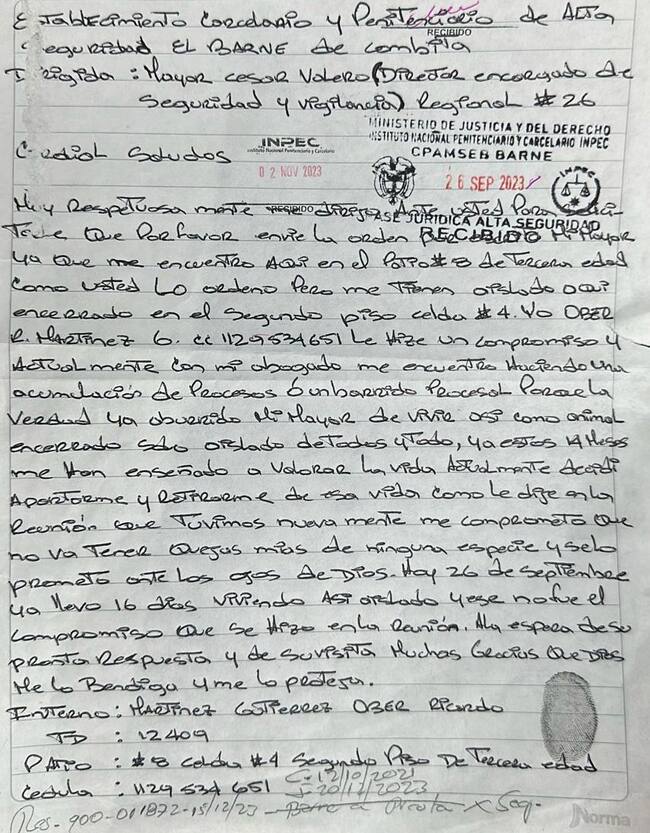 Establecimiento Carcelario y Penitenciario de Alta
RECIBIDO
Seguridad EL BARNE de Combita
Dirigida : Mayor Cesar Valero (Director encargado de
Seguridad y vigilancia) Regional # 26
MINISTERIO DE JUSTICIA Y DEL DERECHO
INSTITUTO NACIONAL PENITENCIARIO Y CARCELARIO INPEC
CPAMSEB BARNE
INPEC
Instituto Nacional Penitenciario y Carcelario
Cordial Saludos
02 NOV 2023
26 SEP 2023
INPEC
RECIBIDO
ASE JURIDICA ALTA SEGURIDAD
RECIBIDO
Muy Respetuosa mente dirijo Ante usted Para
Que Por favor envie la orden Mi Mayor
ya Que me encuentro AQui en el Patio # 8 de Tercera edad
como usted Lo ordeno Pero me Tienen aislado aQui
encerrado en el Segundo piso celda # 4. Yo OBER
R. MARTinez G. cc 1129534651 Le Hize un compromiso y
Actualmente con mi abogado me encuentro Haciendo una
acumulación de Procesos ó un barrido Procesal Porque la
Verdad ya aburrido Mi Mayor de vivir asi como animal
encerrado solo aislado de Todos y Todo, ya estos 14 Meses
me Han enseñado a Valorar La vida Actualmente decidi
Apartarme y Retirarme de esa vida como le dije en la
Reunión que Tuvimos nueva mente me comprometo Que
no va Tener Quejas mias de ninguna especie y se lo
prometo ante Los ojos de Dios. Hoy 26 de septiembre
ya llevo 16 dias viviendo Asi aislado y ese no fue el
compromiso Que se Hizo en la Reunión. A la espera de su
pronta Respuesta y de su visita Muchas Gracias Que Dios
Me lo Bendiga y me lo proteja.
Interno : MARTinez GuTierrez OBER Ricardo
TD : 12409
PATio : # 8 celda # 4 Segundo Piso De Tercera edad
Cedula : 1129 534 651
C-12/10/2021
J-20/12/2023
Res-900-011872-15/12/23 - X Seg.
Norma